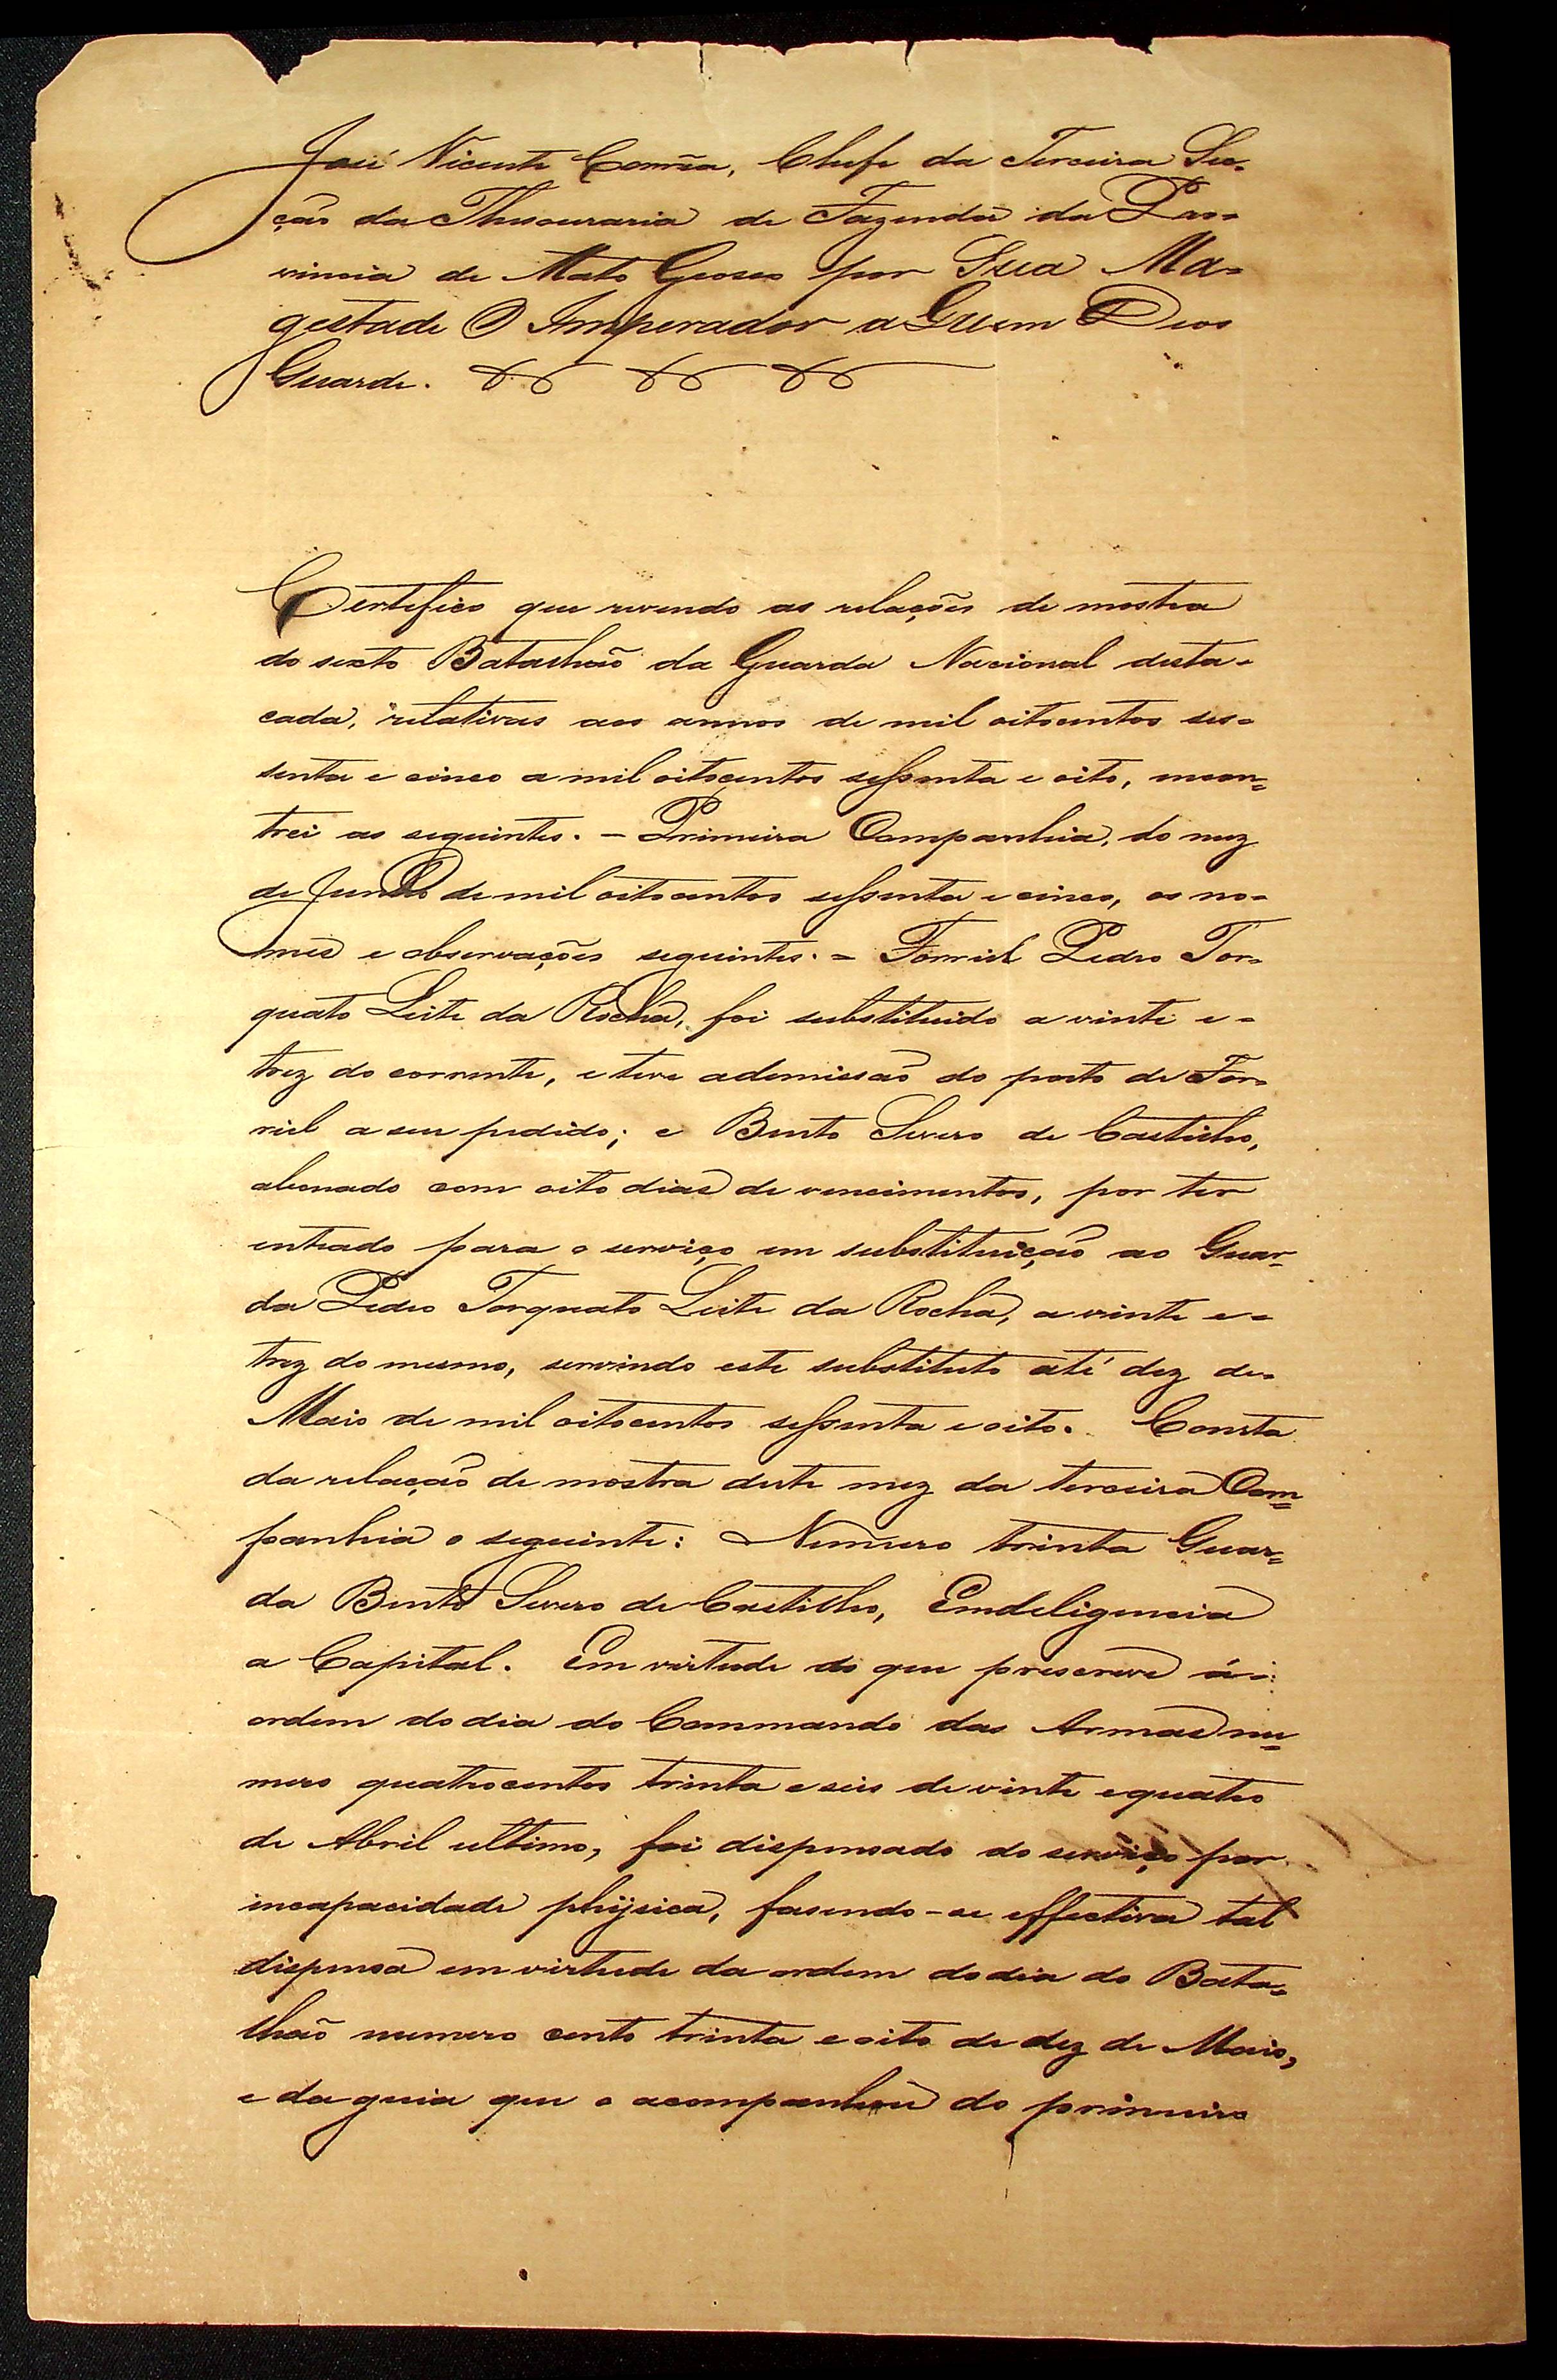 José Vicente Corrêa, Chefe da Terceira Sec-
ção da Thesouraria de Fazenda da Pro-
vincia de Mato Grosso por Sua Ma-
gestade O Imperador a Quem Deos
Guarde.
Certifico que revendo as relações de mostra
do sexto Batalhão da Guarda Nacional desta-
cada, relativas aos annos de mil oitocentos ses-
senta e cinco a mil oitocentos sessenta e oito, encon-
trei as seguintes. - Primeira Companhia, do mez
de Junho de mil oitocentos sessenta e cinco, os no-
mes e observações seguintes. = Forriel Pedro Tor-
quato Leite da Rocha, foi substituido a vinte e -
trez do corrente, e teve ademissão do posto de For-
riel a seu pedido; e Bento Severo de Castilho,
abonado com oito dias de vencimentos, por ter
entrado para o serviço em substituição ao Guar-
da Pedro Torquato Leite da Rocha, a vinte e -
trez do mesmo, servindo este substituto até dez de-
Maio de mil oitocentos sessenta e oito. Consta
da relação de mostra deste mez da terceira Com-
panhia o seguinte: Numero trinta Guar-
da Bento Severo de Castilho, Emdeligencia
a Capital. Em virtude do que prescreve a -
ordem do dia do Commando das Armas nu-
mero quatrocentos trinta e seis de vinte e quatro
de Abril ultimo, foi dispensado do serviço por
incapacidade physica, fasendo-se effectiva tal
dispensa em virtude da ordem do dia do Bata-
lhão numero cento trinta e oito de dez de Maio,
e da guia que o acompanhou do primeiro